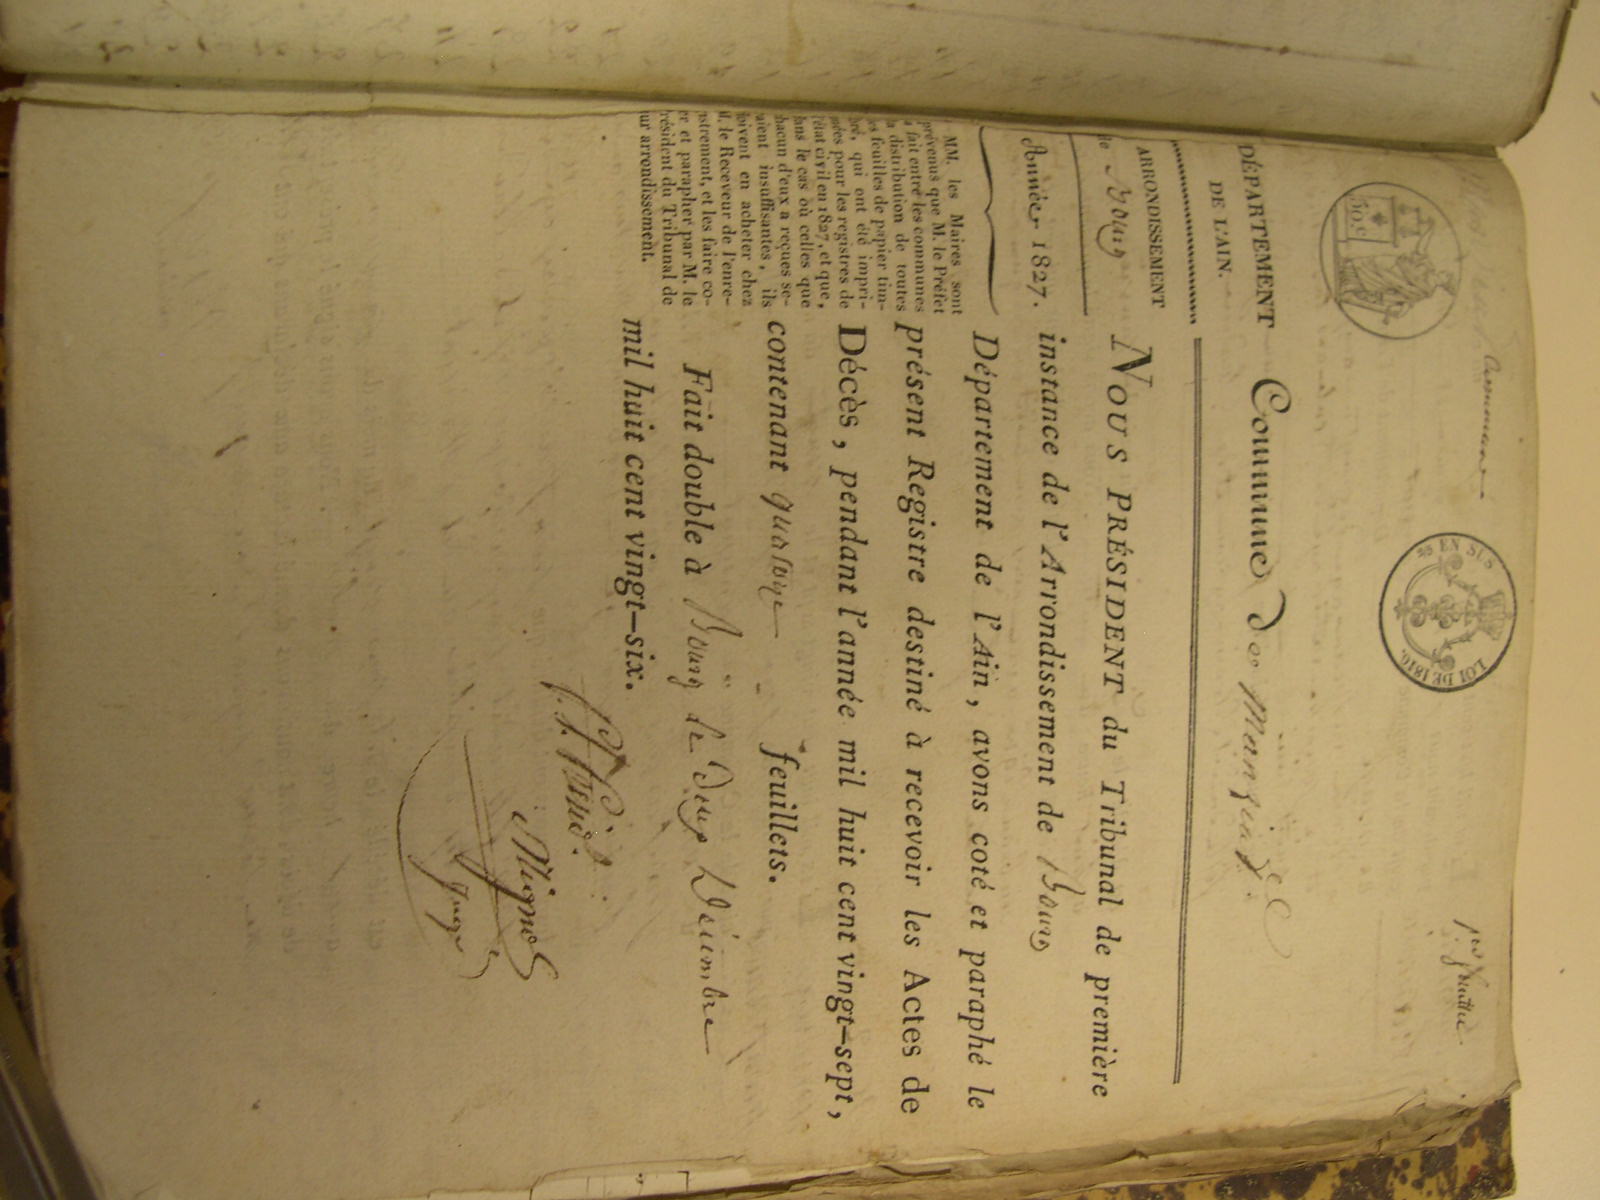 1er feuillet
50 c
25 EN SUS
LOI DE 1816.
DÉPARTEMENT
DE L'AIN.
Commune de
ARRONDISSEMENT
de Bourg
Année 1827.
MM. les Maires sont
prévenus que M. le Préfet
a fait entre les communes
la distribution de toutes
les feuilles de papier tim-
bré, qui ont été impri-
mées pour les registres de
l'état civil en 1827, et que,
dans le cas où celles que
chacun d'eux a reçues se-
raient insuffisantes, ils
doivent en acheter chez
M. le Receveur de l'enre-
gistrement, et les faire co-
ter et parapher par M. le
Président du Tribunal de
leur arrondissement.
NOUS PRÉSIDENT du Tribunal de première
instance de l'Arrondissement de Bourg
Département de l'Ain, avons coté et paraphé le
présent Registre destiné à recevoir les Actes de
Décès, pendant l'année mil huit cent vingt-sept,
contenant quatorze feuillets.
Fait double à Bourg le Deux Décembre
mil huit cent vingt-six.
juge